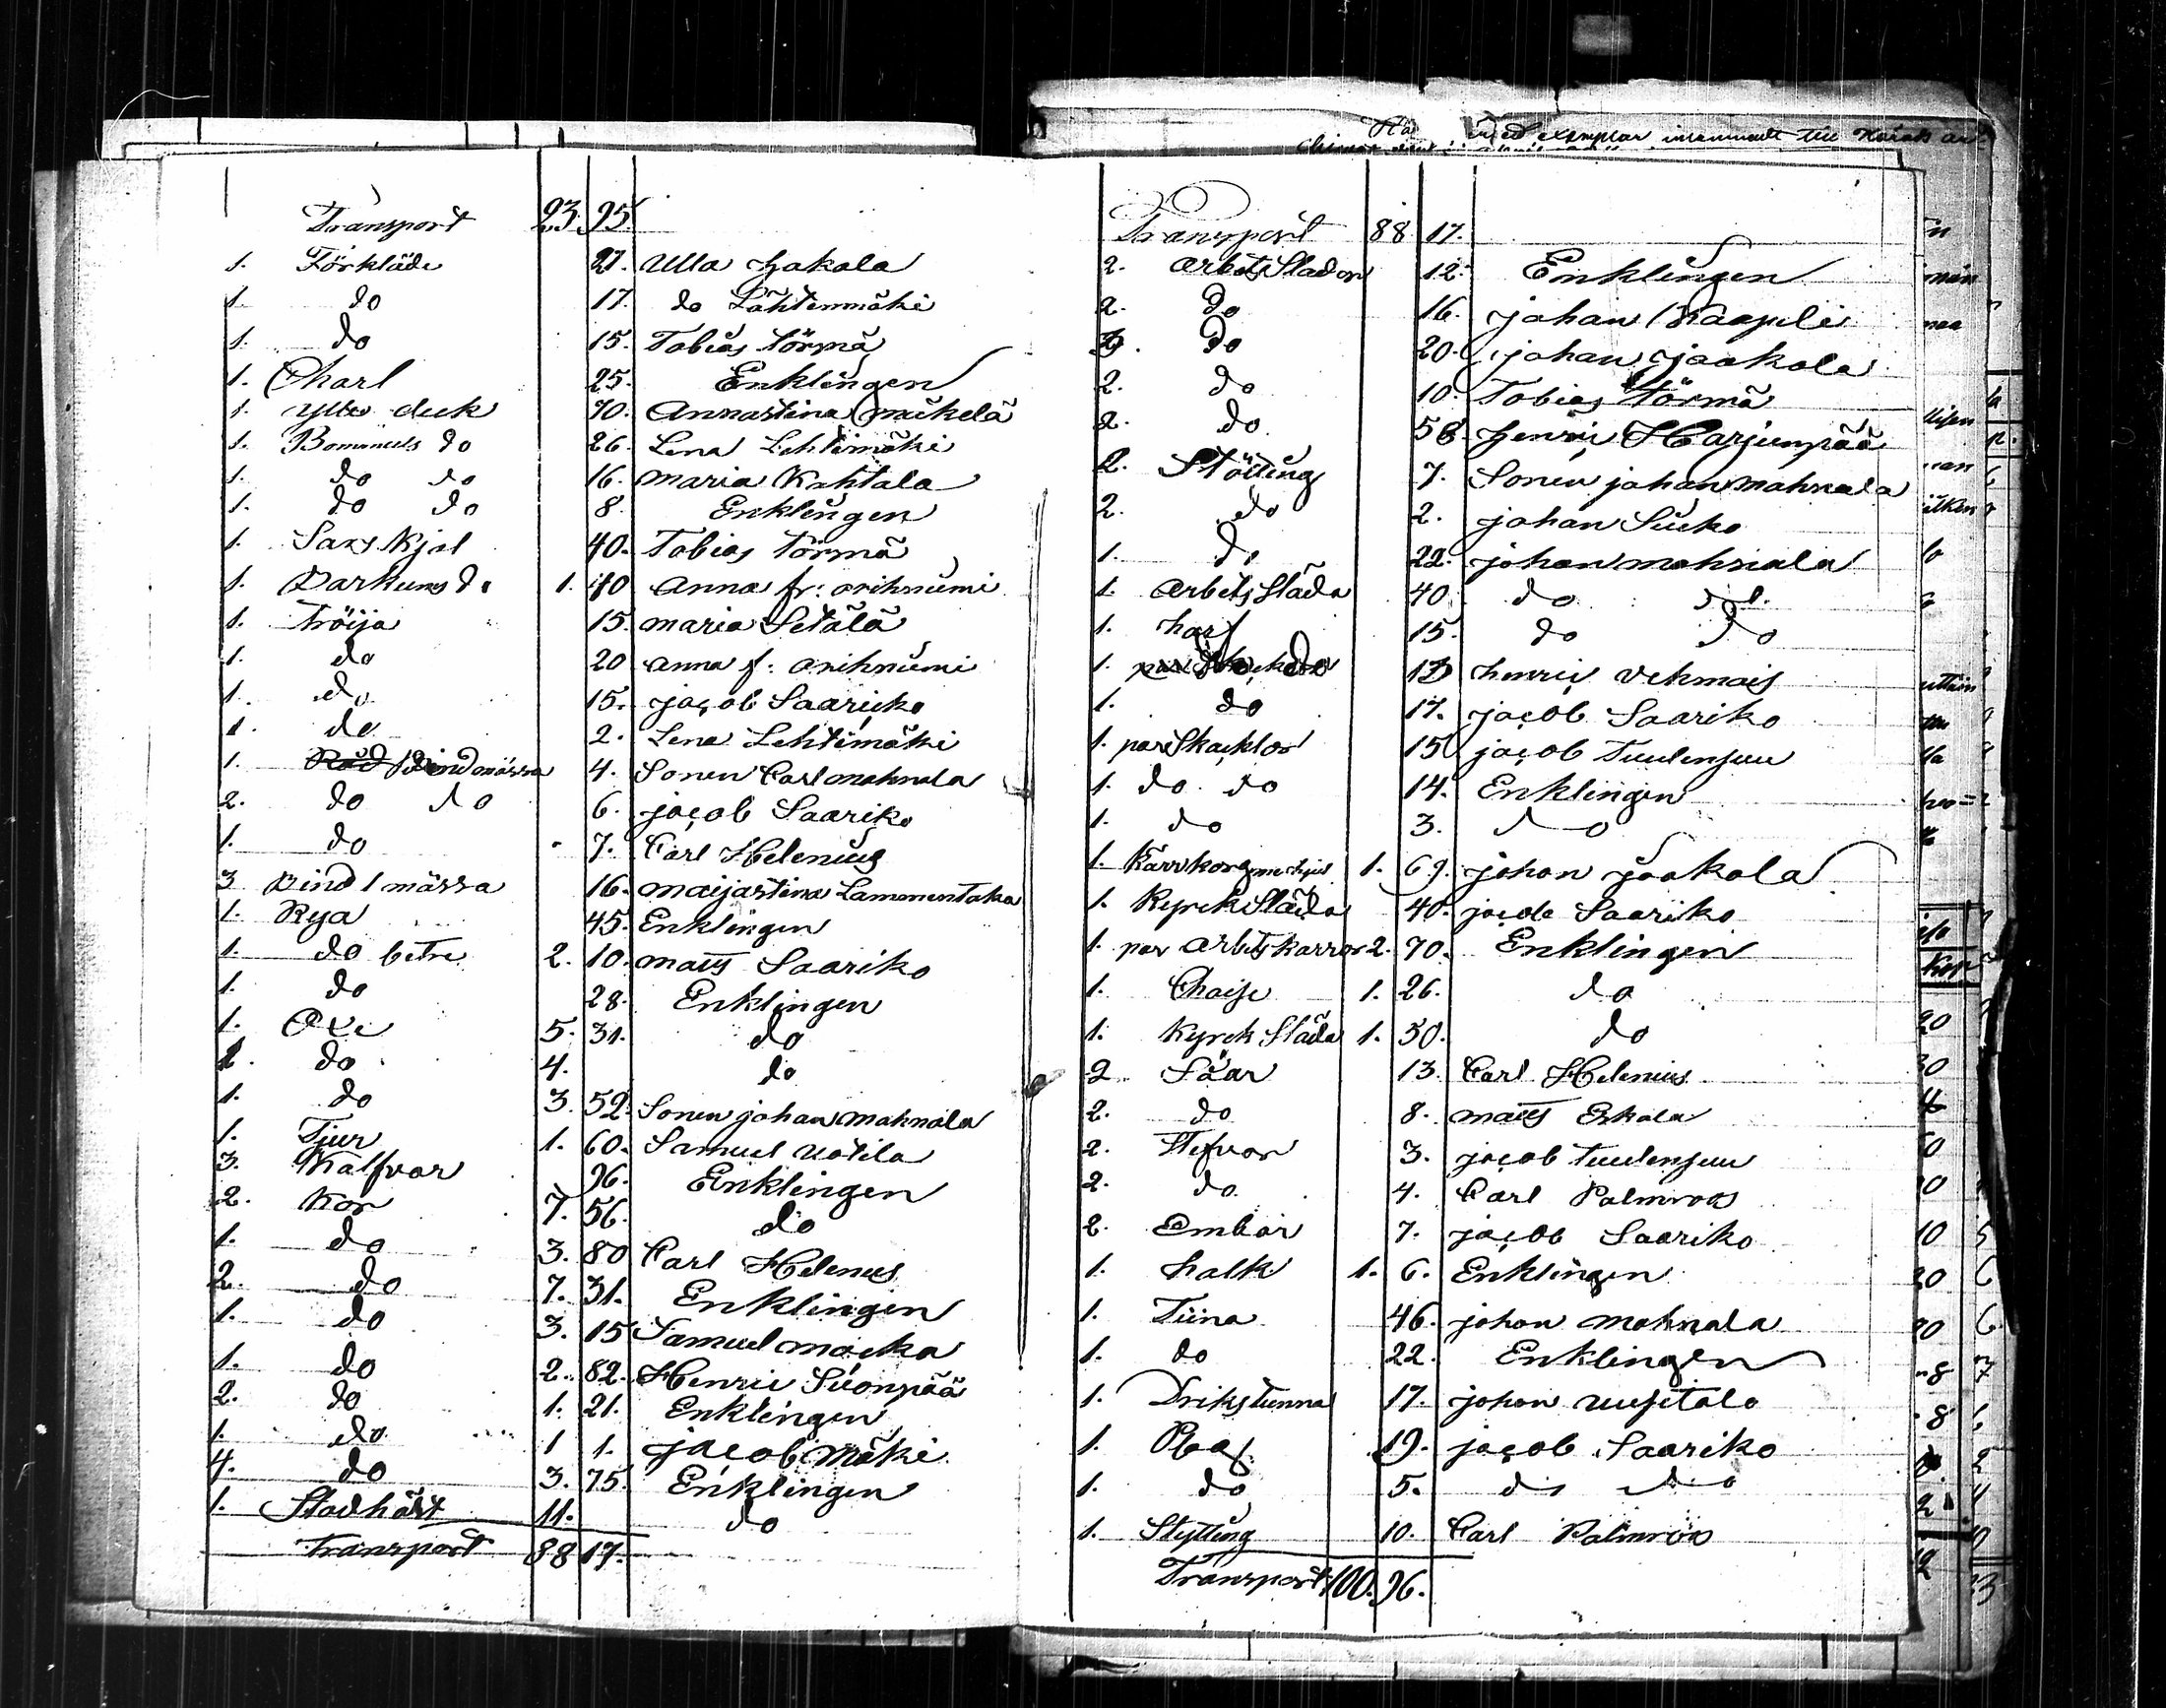 Transport 23. 95.
1. Förkläde 21. Ulla Jakala
1 do 17. do Lähtenmäki
1. do 15. Tobias törmä
1. Charl 25. Enklingen
1. Ylle duk 70. Annastina mäkelä
1. Bominuls do 26. Lena Lehtimäki
1. do do 16. Maria Kahtala
1. do do 8. Enklingen
1. Sars Kjol 40. Tobias törmä
1. Parkums do 1. 40 Anna fr: orihnumi
1. Tröija 15. maria Setälä
1. do 20 anna f: orihnumi
1. do 15. jacob Saariko
1. do 2. Lena Lehtimäki
1. Bindmössa 4. Sonen Carl mahnala
2. do do 6. jacob Saariko
1. do 7. Carl Helenius
3 Bindmössa 16. maijastina Lammentaka
1. Rya 45. Enklingen
1. do betre 2. 10. matts Saariko
1. do 28. Enklingen
1. Oxe 5. 31. do
1. do 4. do
1. do 3. 52. Sonen johan mahnala
1. Tjur 1. 60. Samuel uotila
3. Kalfvar 96. Enklingen
2. Kor 7. 56. do
1. do 3. 80 Carl Helenius
2. do 7. 31. Enklingen
1. do 3. 15 Samuel
1. do 2. 82. Henric Suonpää
2. do 1. 21. Enklingen
1. do 1 1. jacob mäki
4. do 3. 75. Enklingen
1. Stodhäst 11. do
Transport 88 17.
exemplar till
Transport 88 17.
2. Arbets Slador 12. Enklingen
2. do 16. johan Kaapeli
do 20. johan jaakola
2. do 10. Tobias törmä
2. do 58. Henric Harjunpää
2. Stötting 7. Sonen johan mahnala
2. do 2. johan Sucko
1. do 22. johan mahnala
1. Arbets Släda 40. do do
1. harf 15. do do
1. do 13 henric vehmais
1. do 17. jacob Saariko
1. par Skacklor 15 jacob Tuulensuu
1. do do 14. Enklingen
1. do 3. do
1. Kärrkorg me hjul 1. 69. johan jaakola
1. Kyrck Släda 40. jacob Saariko
1. par Arbets karror 2. 70. Enklingen
1. Chaise 1. 26. do
1. Kyrck Släda 1. 50. do
2 Såar 13. Carl Helenius
2. do 8. matts Eskola
2. Stefvor 3. jacob tuulensuu
2. do 4. Carl Palmroos
2. Embar 7. jacob Saariko
1. halk 1. 6. Enklingen
1. Tiina 46. johan mahnala
1. do 22. Enklingen
1. Drikstunna 17. johan uusitalo
1. 19. jacob Saariko
1. do 5. do do
1. Stytting 10. Carl Palmroos
Transport 100. 96.